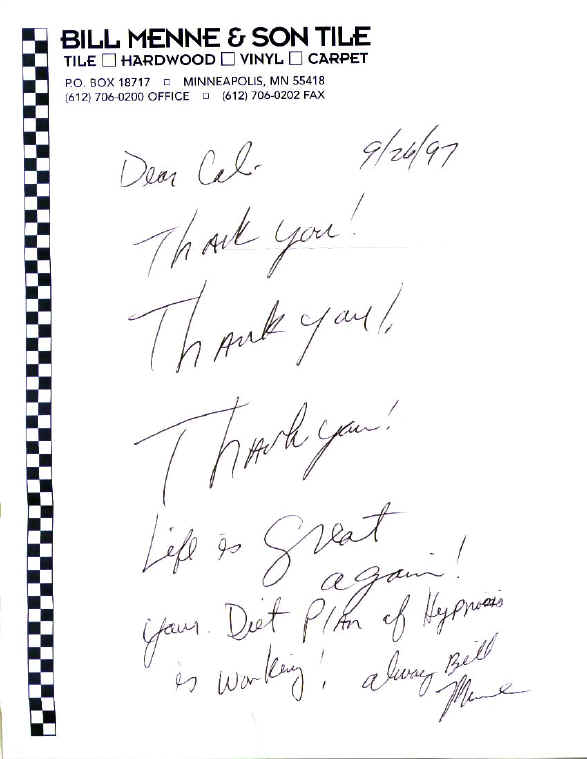 BILL MENNE & SON TILE
TILE □ HARDWOOD □ VINYL □ CARPET
P.O. BOX 18717 □ MINNEAPOLIS, MN 55418
(612) 706-0200 OFFICE □ (612) 706-0202 FAX
9/26/97
Dear Cal.
Thank you!
Thank you!
Thank you!
Life is Great
again!
your Diet Plan of Hypnosis
is working! always Bill
Menne